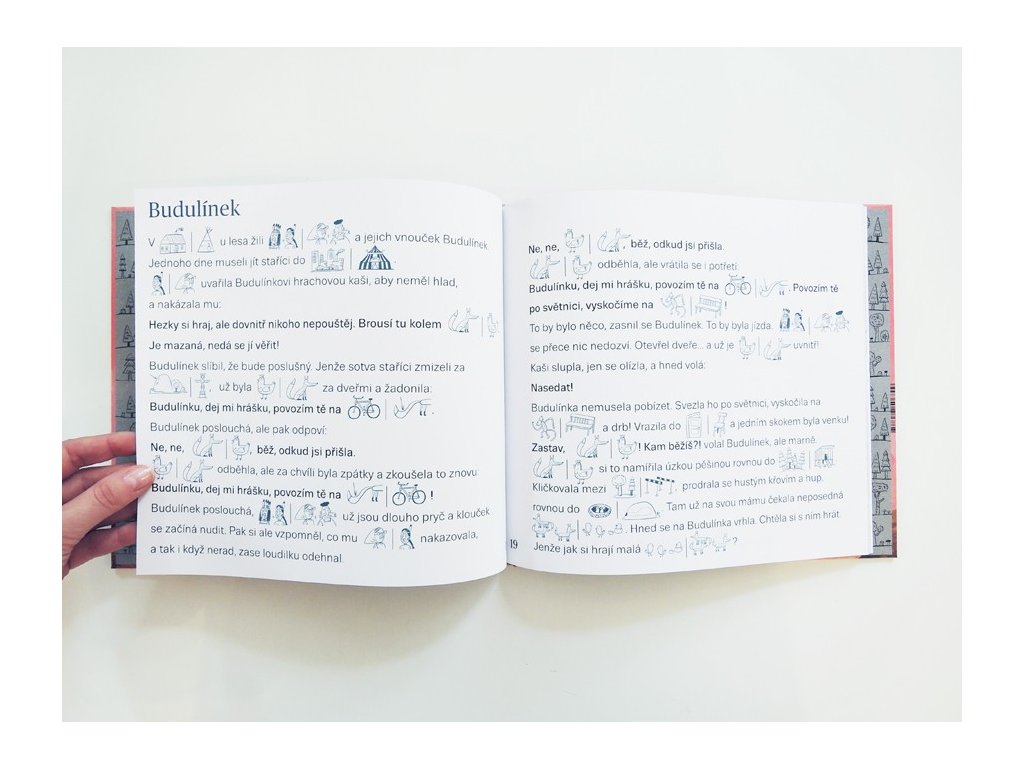 Budulínek
V u lesa žili a jejich vnouček Budulínek.
Jednoho dne museli jít staříci do .
uvařila Budulínkovi hrachovou kaši, aby neměl hlad,
a nakázala mu:
Hezky si hraj, ale dovnitř nikoho nepouštěj. Brousí tu kolem
Je mazaná, nedá se jí věřit!
Budulínek slíbil, že bude poslušný. Jenže sotva staříci zmizeli za
, už byla za dveřmi a žadonila:
Budulínku, dej mi hrášku, povozím tě na .
Budulínek poslouchá, ale pak odpoví:
Ne, ne, běž, odkud jsi přišla.
odběhla, ale za chvíli byla zpátky a zkoušela to znovu:
Budulínku, dej mi hrášku, povozím tě na !
Budulínek poslouchá, už jsou dlouho pryč a klouček
se začíná nudit. Pak si ale vzpomněl, co mu nakazovala,
a tak i když nerad, zase loudilku odehnal.
Ne, ne, , běž, odkud jsi přišla.
odběhla, ale vrátila se i potřetí:
Budulínku, dej mi hrášku, povozím tě na . Povozím tě
po světnici, vyskočíme na !
To by bylo něco, zasnil se Budulínek. To by byla jízda.
se přece nic nedozví. Otevřel dveře... a už je uvnitř!
Kaši slupla, jen se olízla, a hned volá:
Nasedat!
Budulínka nemusela pobízet. Svezla ho po světnici, vyskočila na
a drb! Vrazila do a jedním skokem byla venku!
Zastav, ! Kam běžíš?! volal Budulínek, ale marně.
si to namířila úzkou pěšinou rovnou do .
Kličkovala mezi , prodrala se hustým křovím a hup,
rovnou do . Tam už na svou mámu čekala neposedná
. Hned se na Budulínka vrhla. Chtěla si s ním hrát.
Jenže jak si hrají malá ?
19